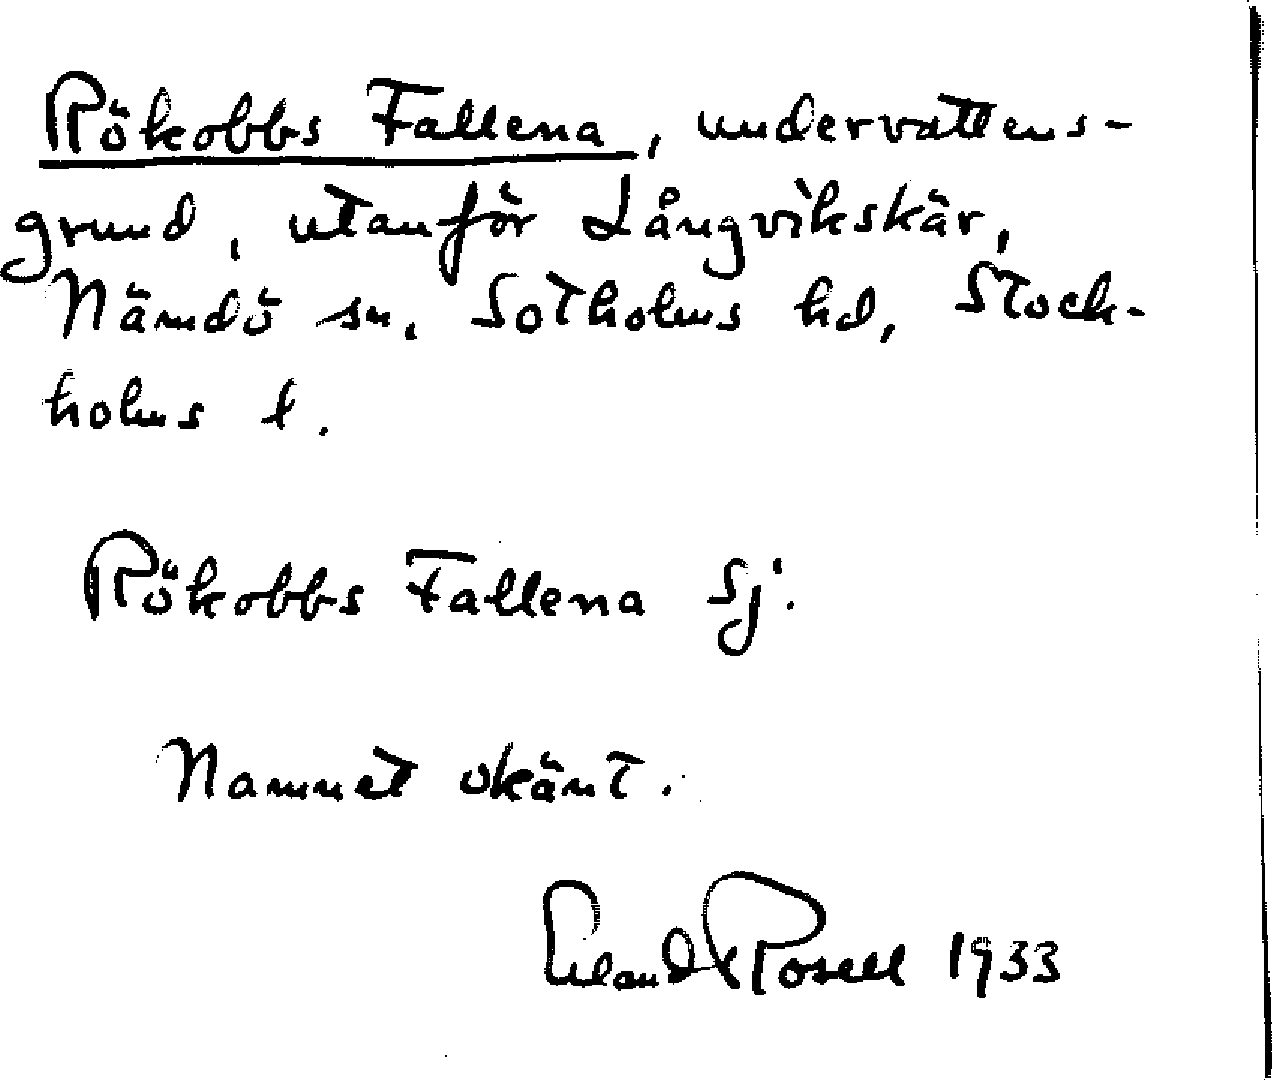 Rökobbs Fallena, undervattens-
grund, utanför Långvikskär,
Nämdö sn, Sotholms hd, Stock-
holms l.
Rökobbs Fallena Sj.
Namnet okänt.
Erland Rosell 1933